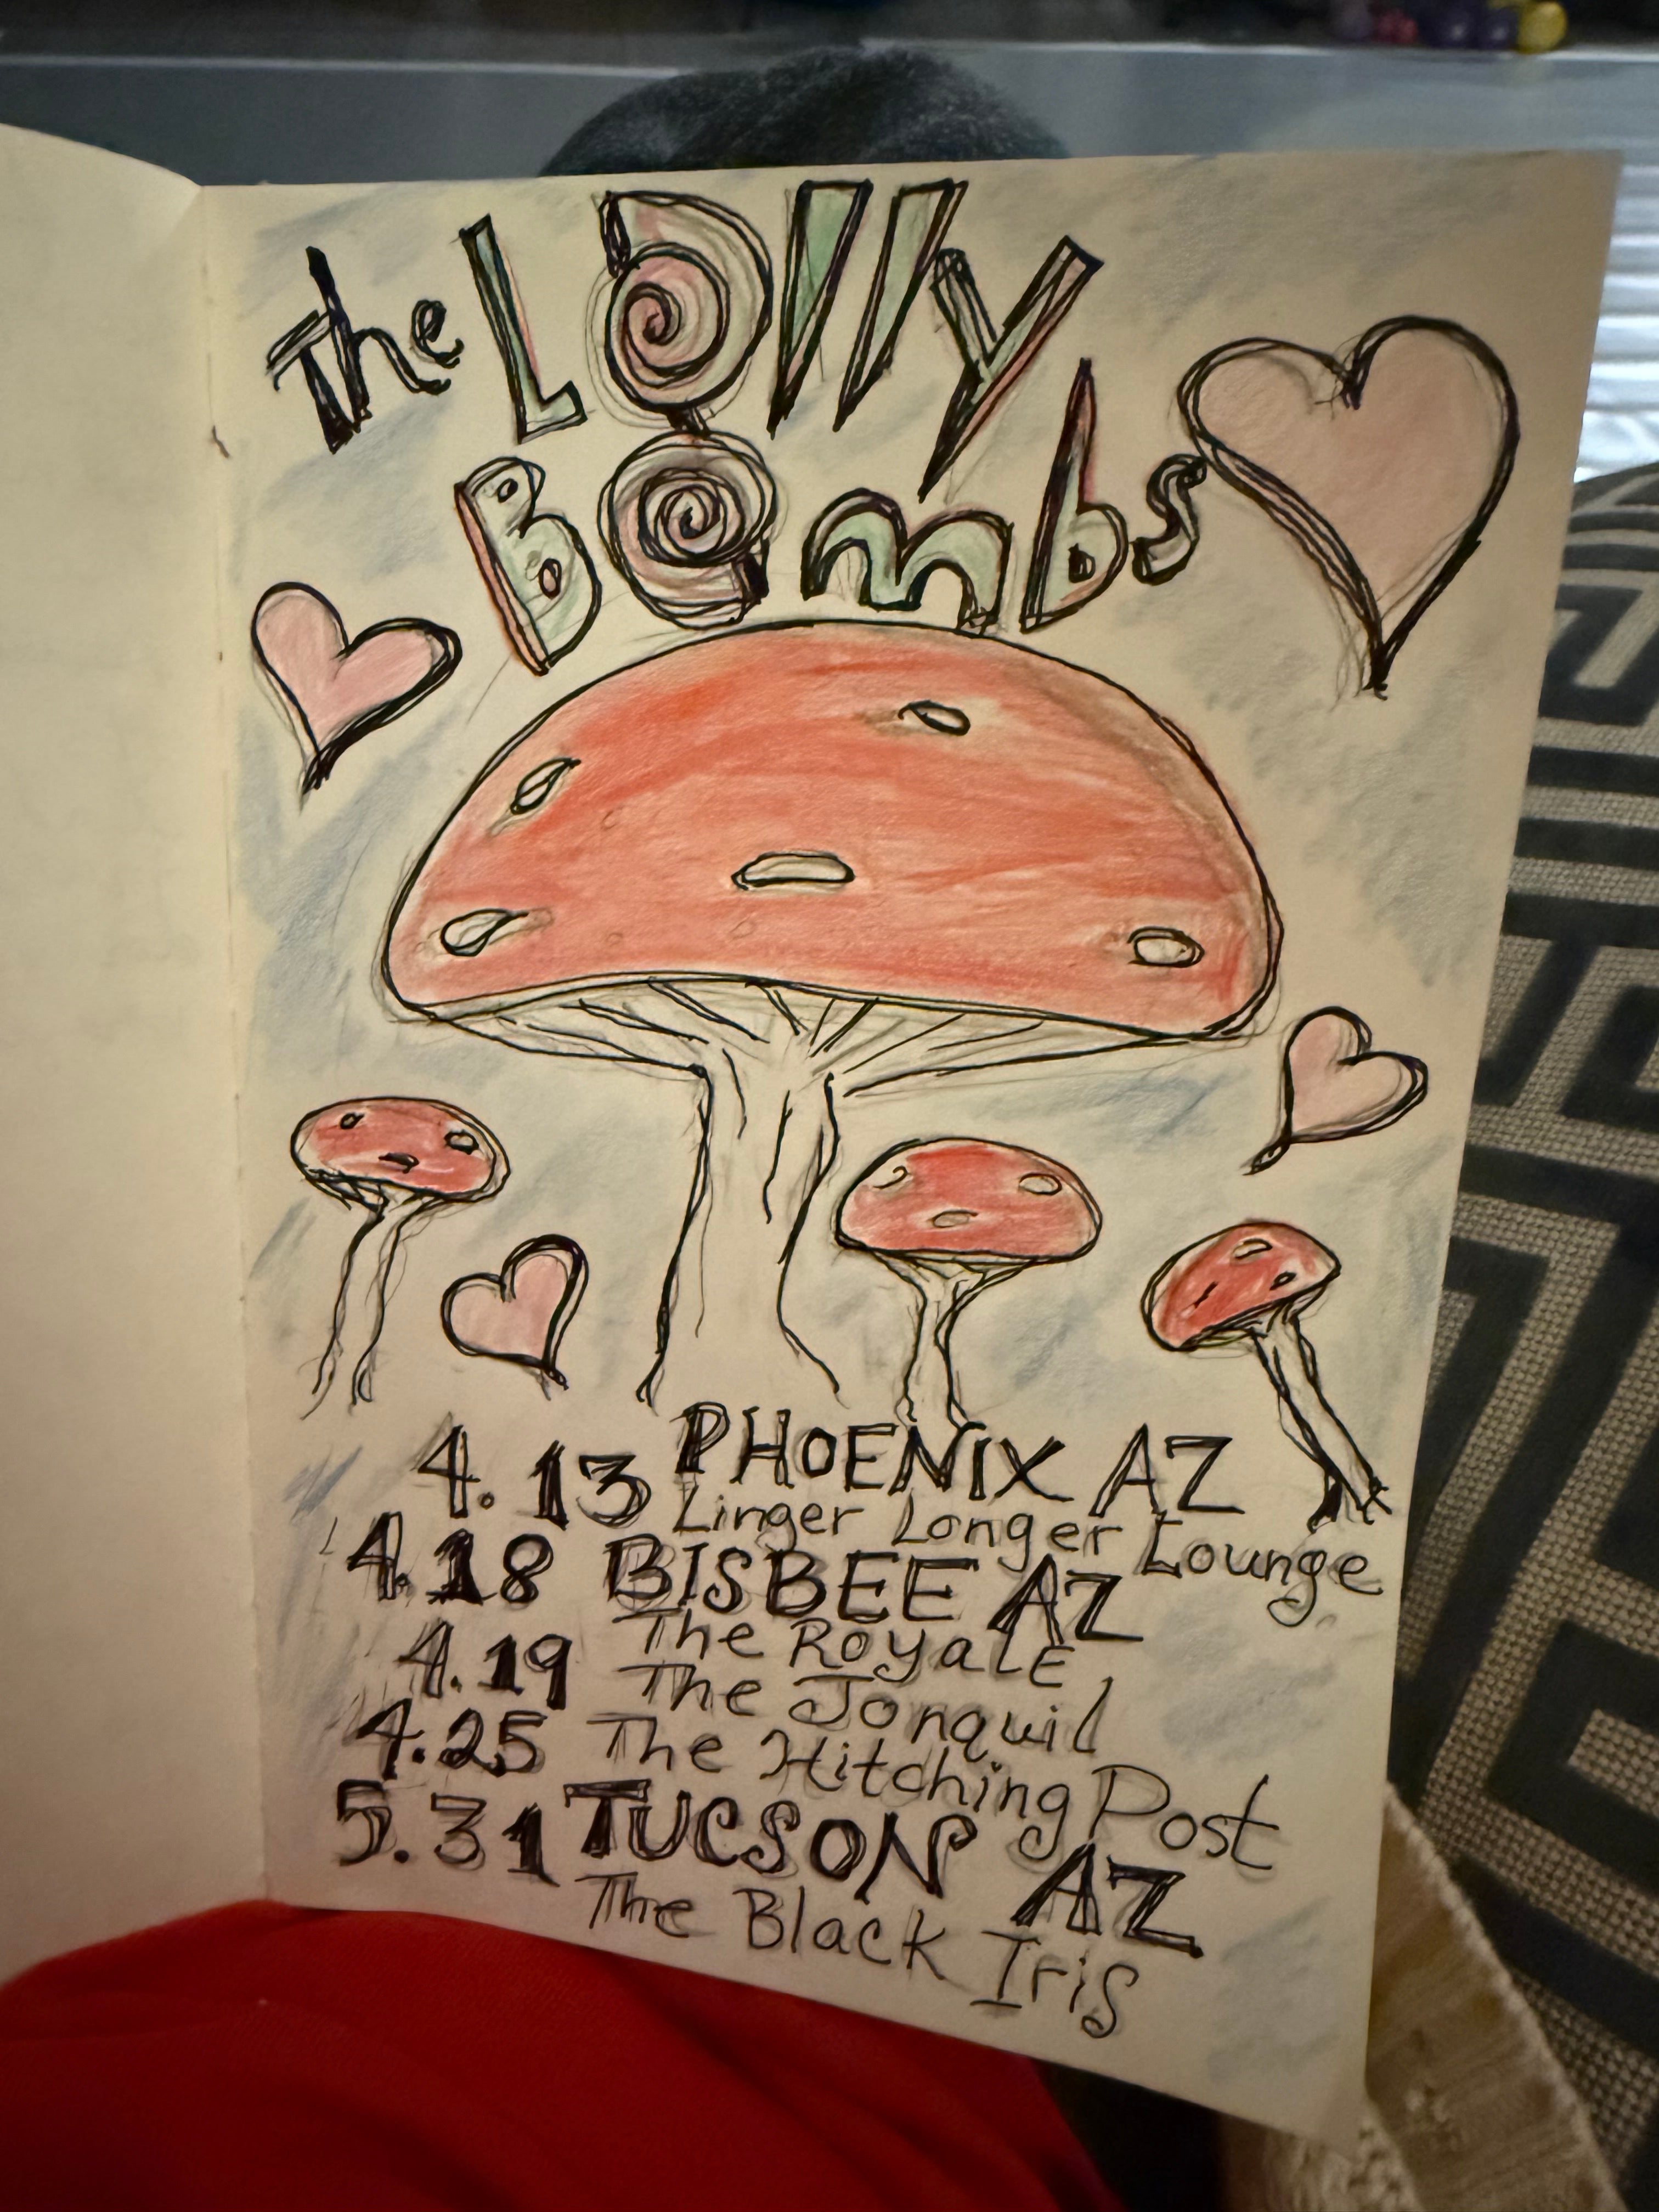 The Lolly
Bombs
4.13 PHOENIX AZ
Linger Longer Lounge
4.18 BISBEE AZ
The RoyalE
4.19 The Jonquil
4.25 The Hitching Post
5.31 TUCSON AZ
The Black Iris